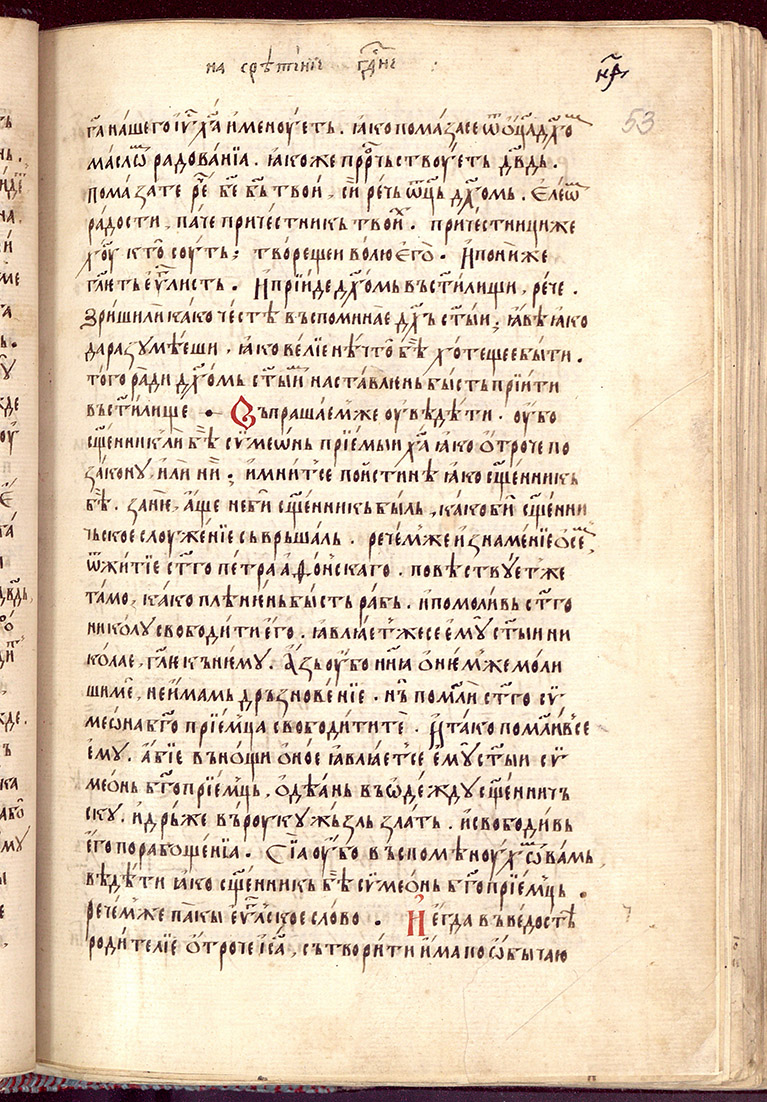 на срѣтенїе гⷭ҇не
н҃г
53
га нашего іѵ҃ ха҃ именоуеть. ꙗко помаза се ѿ ѿц҃а дх҃ѡⷨ
маслѡⷨ радованїа. ꙗкоже прⷪ҇рчьствоуеть дв҃дь.
помаза те рⷱ҇е бж҃е бг҃ь твои, сїи речь ѿц҃ь дх҃омь. Елеѡⷨ
радости, паче причестникь твоиⷯ. причестници же
хв҃у кто соуть; творещеи волю его. И пониже
гл҃еть еѵⷢ҇листь. И прїиде дх҃омь вь ст҃илищи, рече.
Зриши ли како чⷭ҇тѣ въспоминае дх҃ъ ст҃ыи; ꙗвѣ ꙗко
да разумѣеши, ꙗко велїе нѣчто бѣ хотещее быти.
того ради дх҃омь ст҃ыиⷨ наставлень бысть прїити
вь ст҃илище • Въпрашаем же оувѣдѣти. оубо
сщ҃енникь ли бѣ сѵмеѡнь прїемыи ха҃ ꙗко ѻтроче по
закону, или ни; и мнит се поистинѣ ꙗко сщ҃енникь
бѣ. зане, аще не би сщ҃енникь быль, како би сщ҃енни
чьское слоуженїе сьврьшаль. речем же и знаменїе ѻ сеⷨ,
ѿ житїе ст҃го петра аѳонскаго. повѣствует же
тамо, како плѣнень бысть рабь. и помоливь ст҃го
николу свободити его. ꙗвлꙗет же се ему ст҃ыи ни
колае, гл҃ѥ къ нѥму. Азь оубо нн҃ꙗ ѻ нѥмже моли
ши ме, не имамь дръзновенїе. нь помоли ст҃го сѵ
меѡна бг҃опрїемца свободити те. И тако помолив се
ему. абїе въ нощи ѻное ꙗвлꙗет се ему ст҃ыи сѵ
меѡнь бг҃опрїемць, ѻдѣань въ ѡдежду сщ҃еннич
ску. и дръже въ роуку жьзль злать. и свободивь
его порабощенїа. Сїа оубо въспоменоухѡⷨ вамь,
вѣдѣти ꙗко сщ҃енникь бѣ сѵмеѡнь бг҃опрїемць.
речем же пакы еѵⷢ҇лское слово. И егда въведостѣ
родителїе ѻтроче іс҃а, сътворити има по ѡбычаю